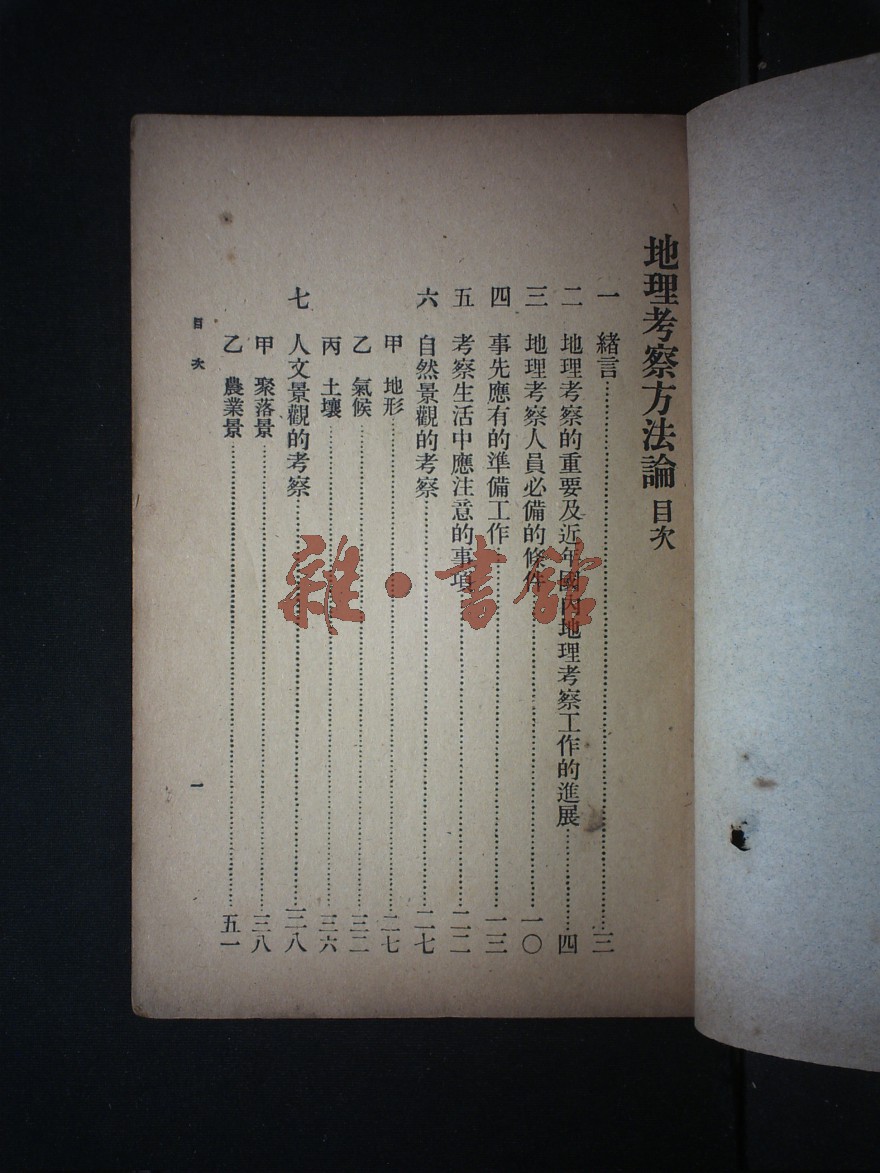 地理考察方法論 目次
一 緒言……三
二 地理考察的重要及近年國內地理考察工作的進展……四
三 地理考察人員必備的條件……一〇
四 事先應有的準備工作……一三
五 考察生活中應注意的事項……二二
六 自然景觀的考察……二七
甲 地形……二七
乙 氣候……三二
丙 土壤……三六
七 人文景觀的考察……三八
甲 聚落景……三八
乙 農業景……五一
目次 一
雜·書館